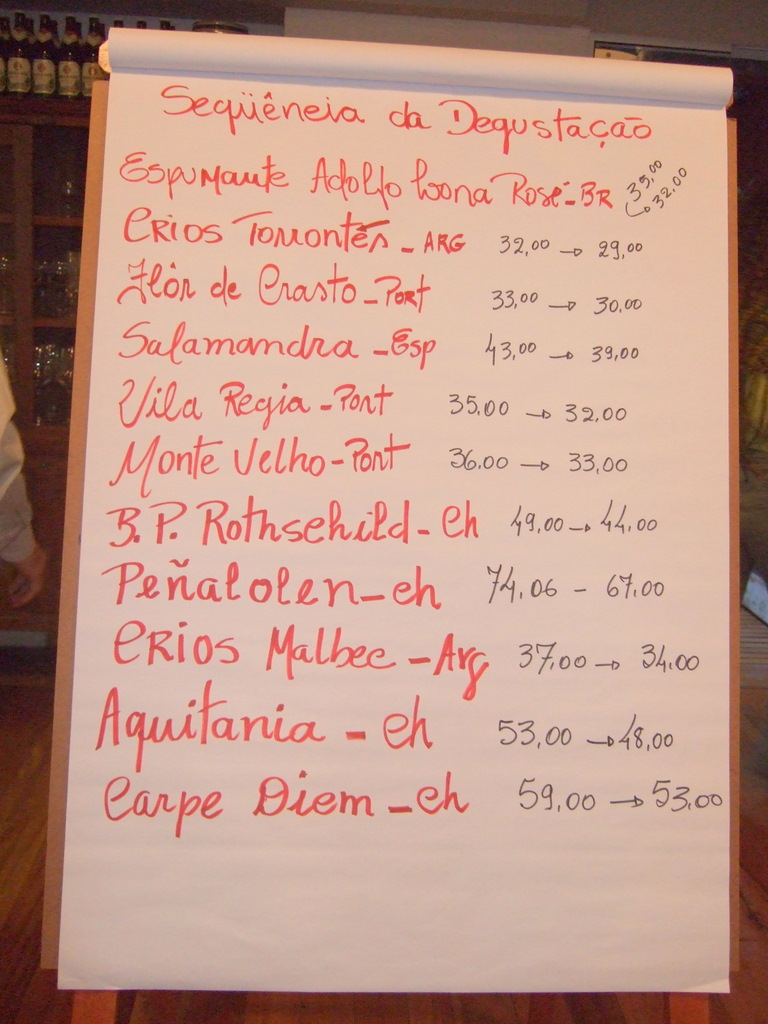 Seqüência da Degustação
Espumante Adolfo Lona Rosé - BR 35,00 → 32,00
Crios Torrontés - ARG 32,00 → 29,00
Flôr de Crasto - Port 33,00 → 30,00
Salamandra - Esp 43,00 → 39,00
Vila Regia - Port 35,00 → 32,00
Monte Velho - Port 36,00 → 33,00
B.P. Rothschild - Ch 49,00 → 44,00
Peñalolen - ch 74,06 - 67,00
Crios Malbec - Arg 37,00 → 34,00
Aquitania - ch 53,00 → 48,00
Carpe Diem - ch 59,00 → 53,00